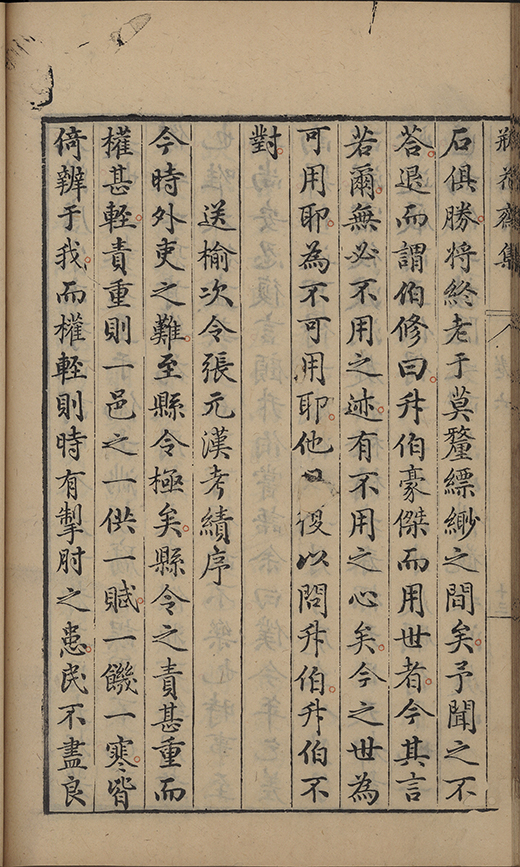 瓶花齋集
石俱勝將終老于莫釐縹緲之間矣予聞之不
荅退而謂伯修曰升伯豪傑而用世者今其言
若爾無必不用之迹有不用之心矣今之世為
可用耶為不可用耶他日復以問升伯升伯不
對
送榆次令張元漢考績序
今時外吏之難至縣令極矣縣令之責甚重而
權甚輕責重則一邑之一供一賦一饑一寒皆
倚辨于我而權輕則時有掣肘之患民不盡良